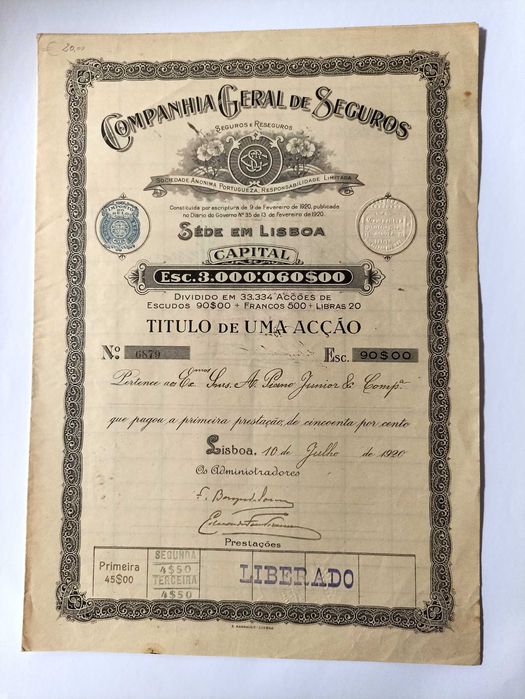 £ 20,00
COMPANHIA GERAL DE SEGUROS
SEGUROS E RESEGUROS
SOCIEDADE ANONIMA PORTUGUEZA, RESPONSABILIDADE LIMITADA
Constituida por escriptura de 9 de Fevereiro de 1920, publicada
no Diario do Governo Nº 35 de 13 de Fevereiro de 1920.
SÉDE EM LISBOA
CAPITAL
ESC. 3.000:060$00
DIVIDIDO EM 33.334 ACÇÕES DE
ESCUDOS 90$00 + FRANCOS 500 + LIBRAS 20
TITULO DE UMA ACÇÃO
Nº: 6879 ESC. 90$00
Pertence ao Exmos Snrs. A. Junior & Compª
que pagou a primeira prestação, de cincoenta por cento
Lisboa, 10 de Julho de 1920
Os Administradores
Prestações
Primeira
45$00
SEGUNDA
4$50
TERCEIRA
4$50
LIBERADO